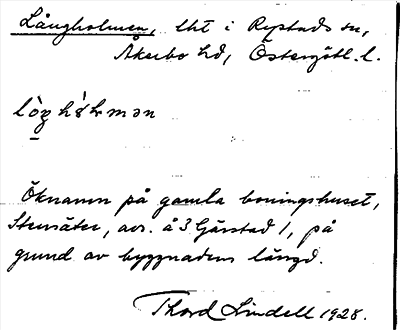 Långholmen, lht i Rystads sn,
Åkerbo hd, Östergötl. l.
Öknamn på gamla boningshuset,
Stensäter, avs. å 3 Gärstad 1, på
grund av byggnadens längd.
Thord Lindell 1928.